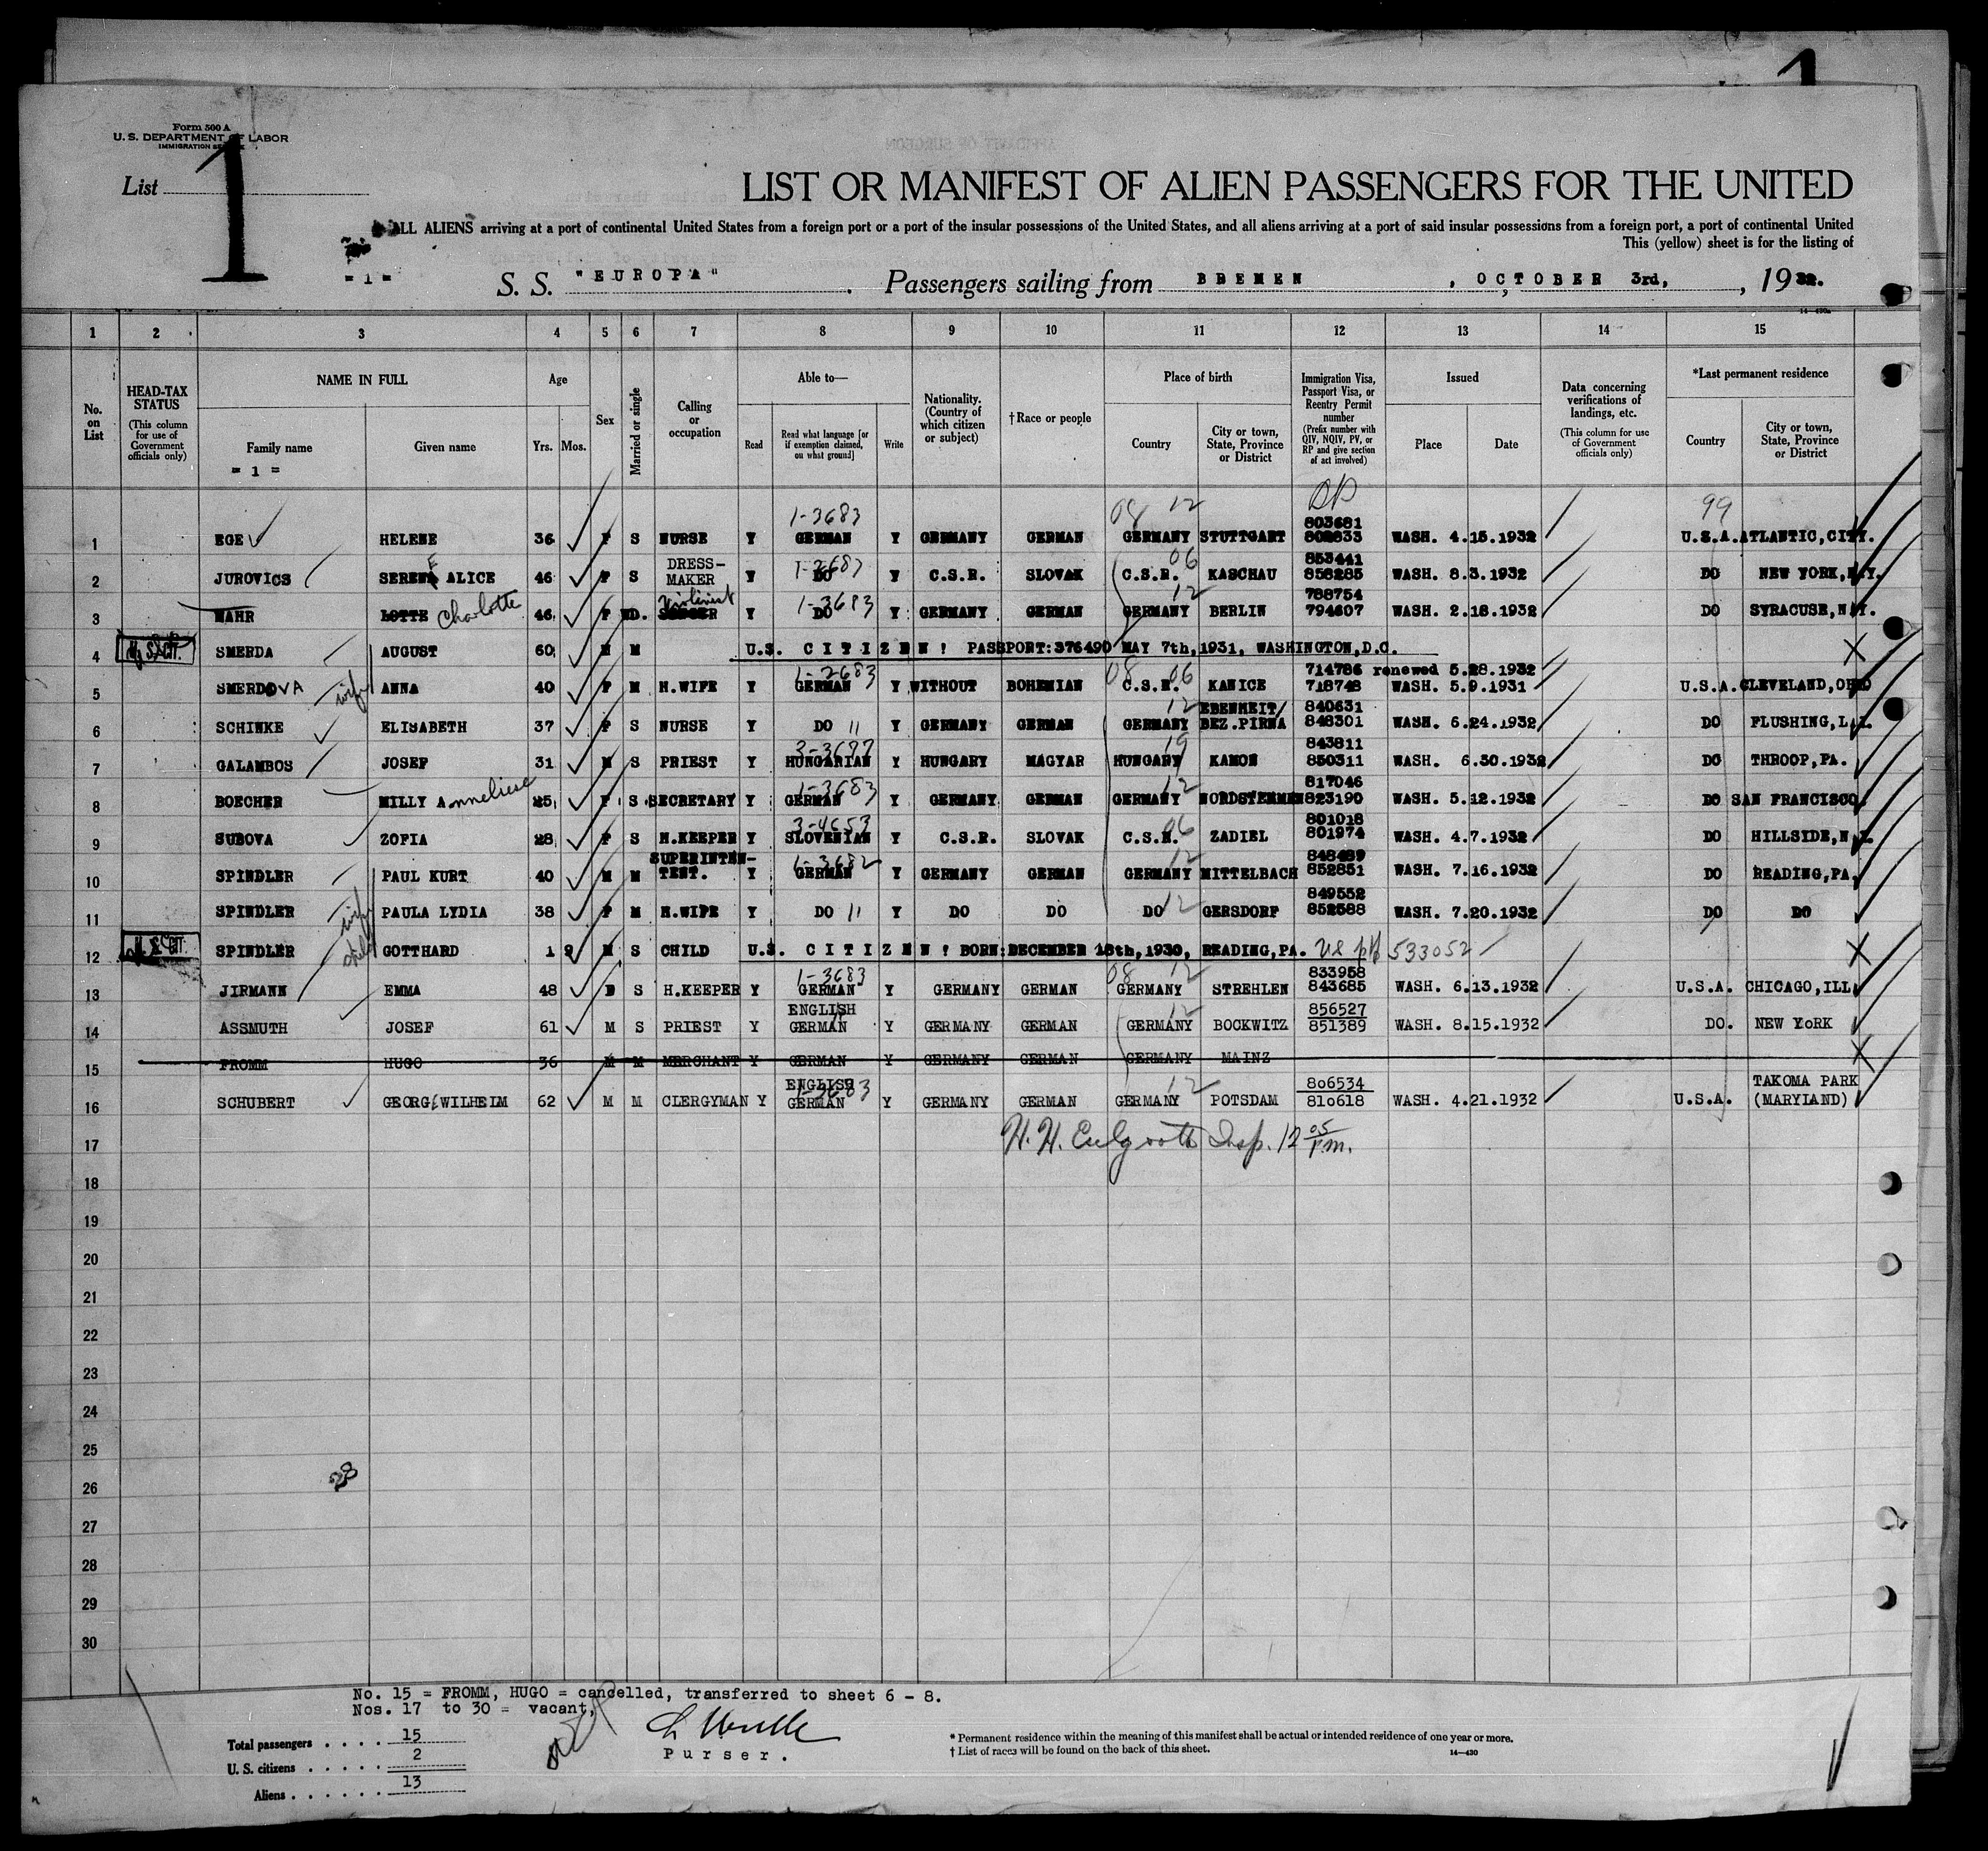 1
Form 500 A
U. S. DEPARTMENT OF LABOR
IMMIGRATION
List 1
LIST OR MANIFEST OF ALIEN PASSENGERS FOR THE UNITED
ALL ALIENS arriving at a port of continental United States from a foreign port or a port of the insular possessions of the United States, and all aliens arriving at a port of said insular possessions from a foreign port, a port of continental United
This (yellow) sheet is for the listing of
= 1 = S. S. "EUROPA" . Passengers sailing from BREMEN , OCTOBER 3rd, , 1932.
14—430a
1 2 3 4 5 6 7 8 9 10 11 12 13 14 15
No. on List
HEAD-TAX STATUS (This column for use of Government officials only)
NAME IN FULL
Family name
= 1 =
Given name
Age
Yrs. Mos.
Sex
Married or single
Calling or occupation
Able to—
Read
Read what language [or if exemption claimed, on what ground]
Write
Nationality. (Country of which citizen or subject)
†Race or people
Place of birth
Country
City or town, State, Province or District
Immigration Visa, Passport Visa, or Reentry Permit number (Prefix number with QIV, NQIV, PV, or RP and give section of act involved)
Issued
Place
Date
Data concerning verifications of landings, etc. (This column for use of Government officials only)
*Last permanent residence
Country
City or town, State, Province or District
1-3683 08 12 99
803681
1 EGE HELENE 36 F S NURSE Y GERMAN Y GERMANY GERMAN GERMANY STUTTGART 802833 WASH. 4.15.1932 U.S.A. ATLANTIC,CITY.
DRESS- 06 853441
2 JUROVICS SERENE ALICE 46 F S MAKER Y DO Y C.S.R. SLOVAK C.S.R. KASCHAU 858285 WASH. 8.3.1932 DO NEW YORK,N.Y.
Violinist 1-3683 12 788754
3 MAHR LOTTE Charlotte 46 F WD. Y DO Y GERMANY GERMAN GERMANY BERLIN 794607 WASH. 2.18.1932 DO SYRACUSE,N.Y.
4 U.S. CIT. SMERDA AUGUST 60 M M U.S. CITIZEN! PASSPORT:376490 MAY 7th,1931, WASHINGTON,D.C. X
1-2683 08 06 714786 renewed 5.28.1932
5 SMERDOVA wife ANNA 40 F M H.WIFE Y GERMAN Y WITHOUT BOHEMIAN C.S.R. KANICE 718748 WASH. 5.9.1931 U.S.A. CLEVELAND,OHIO
12 EBENHEIT/ 840631
6 SCHINKE ELISABETH 37 F S NURSE Y DO 11 Y GERMANY GERMAN GERMANY BEZ.PIRNA 848301 WASH. 6.24.1932 DO FLUSHING,L.I.
19 843811
7 GALAMBOS JOSEF 31 M S PRIEST Y HUNGARIAN Y HUNGARY MAGYAR HUNGARY KAMON 850311 WASH. 6.30.1932 DO THROOP,PA.
1-3683 12 817046
8 BOECHER MILLY Anneliese 25 F S SECRETARY Y GERMAN Y GERMANY GERMAN GERMANY NORDSTEMMEN 823190 WASH. 5.12.1932 DO SAN FRANCISCO.
3-4653 06 801018
9 SUBOVA ZOFIA 28 F S H.KEEPER Y SLOVENIAN Y C.S.R. SLOVAK C.S.R. ZADIEL 801974 WASH. 4.7.1932 DO HILLSIDE,N.J.
SUPERINTEN- 1-3682 12 848489
10 SPINDLER PAUL KURT 40 M M TENT. Y GERMAN Y GERMANY GERMAN GERMANY MITTELBACH 852851 WASH. 7.16.1932 DO READING,PA.
849552
11 SPINDLER wife PAULA LYDIA 38 F M H.WIFE Y DO 11 Y DO DO DO 12 GERSDORF 852588 WASH. 7.20.1932 DO DO
12 U.S. CIT. SPINDLER child GOTTHARD 1 9 M S CHILD U.S. CITIZEN! BORN:DECEMBER 18th,1930, READING,PA. US pp 533052 X
1-3683 08 12 833958
13 JIRMANN EMMA 48 S H.KEEPER Y GERMAN Y GERMANY GERMAN GERMANY STREHLEN 843685 WASH. 6.13.1932 U.S.A. CHICAGO,ILL.
ENGLISH 12 856527
14 ASSMUTH JOSEF 61 M S PRIEST Y GERMAN Y GERMANY GERMAN GERMANY BOCKWITZ 851389 WASH. 8.15.1932 DO. NEW YORK
15 FROMM HUGO 36 M M MERCHANT Y GERMAN Y GERMANY GERMAN GERMANY MAINZ X
ENGLISH 1-3683 12 806534 TAKOMA PARK
16 SCHUBERT GEORG WILHELM 62 M M CLERGYMAN Y GERMAN Y GERMANY GERMAN GERMANY POTSDAM 810618 WASH. 4.21.1932 U.S.A. (MARYLAND)
17 H. H. Insp. 12 05 P.m.
18
19
20
21
22
23
24
25
26
27
28
29
30
No. 15 = FROMM, HUGO = cancelled, transferred to sheet 6 - 8.
Nos. 17 to 30 = vacant,
Total passengers . . . . 15
U. S. citizens . . . . . 2
Aliens . . . . . . 13
Purser.
* Permanent residence within the meaning of this manifest shall be actual or intended residence of one year or more.
† List of races will be found on the back of this sheet.
14—430